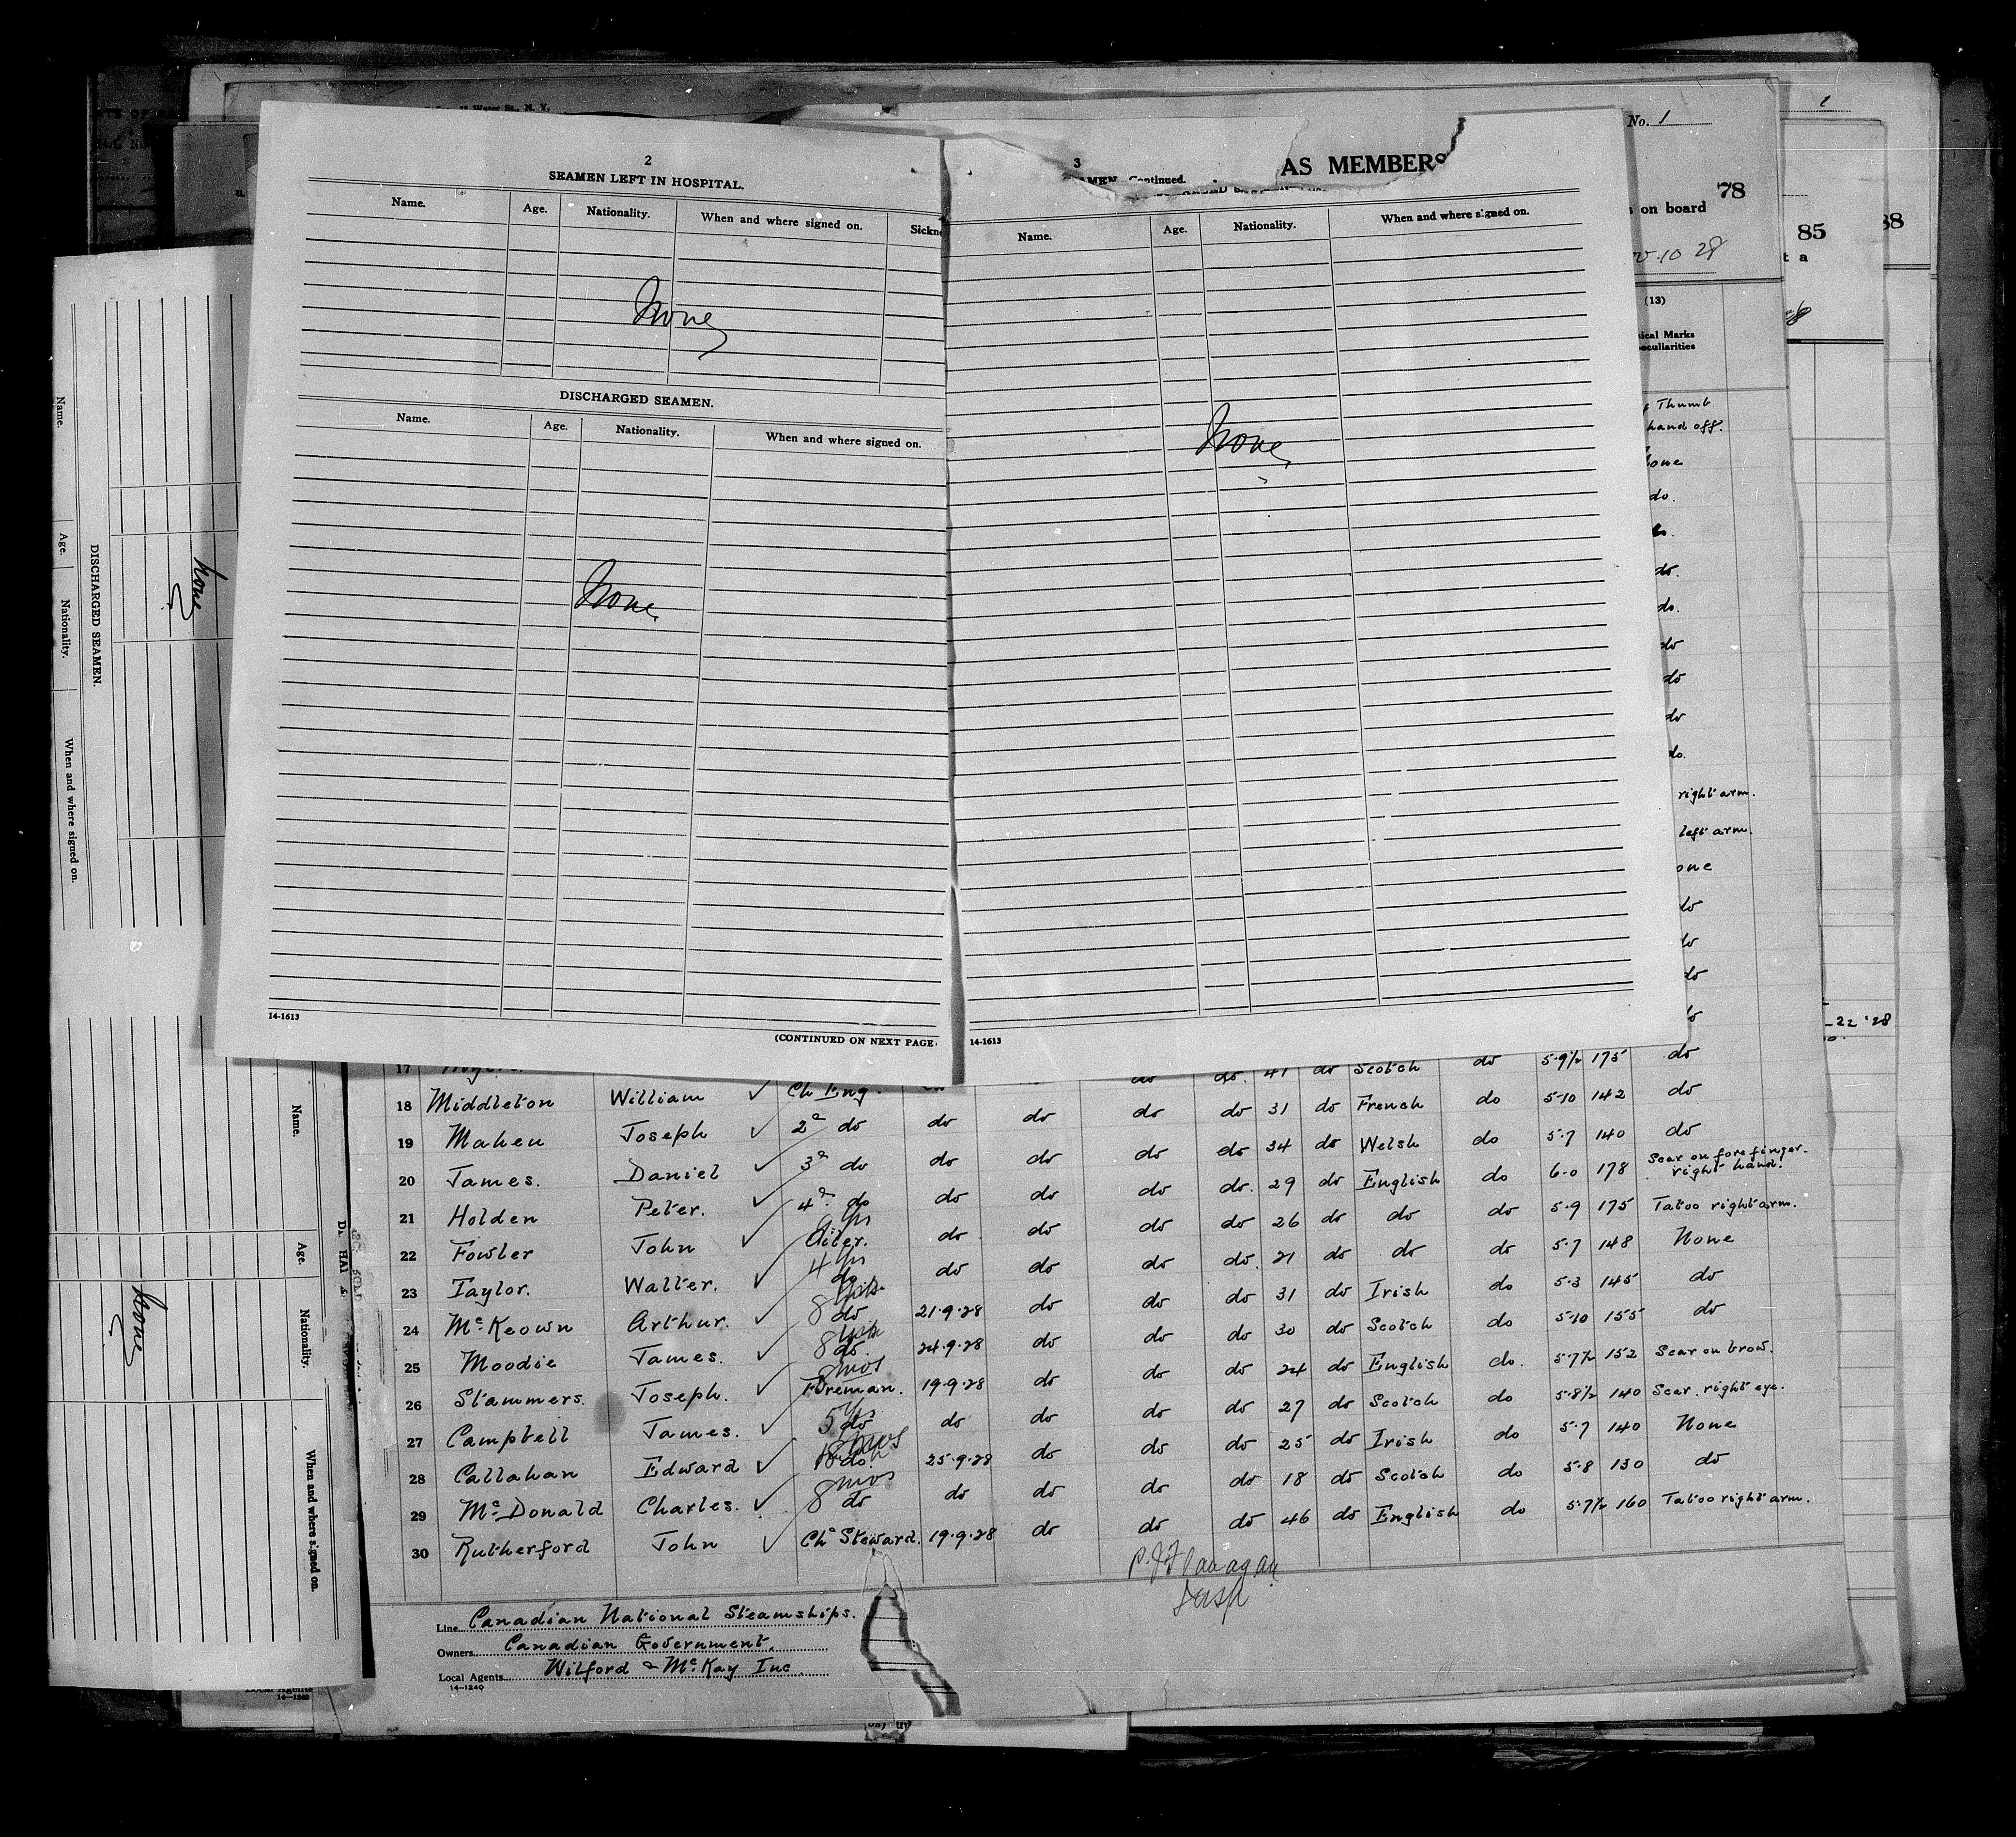 11 Water St., N. Y.
No. 1
2
SEAMEN LEFT IN HOSPITAL.
Name. Age. Nationality. When and where signed on.
None
DISCHARGED SEAMEN.
Name. Age. Nationality. When and where signed on.
None
14-1613
(CONTINUED ON NEXT PAGE
3
AS MEMBERS
Continued.
Name. Age. Nationality. When and where signed on.
None
14-1613
78
on board
10 28
85
t a
88
(13)
Thumb
hand off.
do.
do.
do.
do
do
do
do.
right arm.
left arm.
do
do
do
do
22 '28
17
18 Middleton William Ch Eng. do. 41 do Scotch do 5-9½ 175 do
19 Maheu Joseph 2d do do do do do 31 do French do 5-10 142 do
20 James. Daniel 3d do do do do do 34 do Welsh do 5-7 140 do
21 Holden Peter. 4th do do do do do. 29 do English do 6-0 178 Scar on fore finger. right hand.
22 Fowler John Oiler. do do do do 26 do do do 5-9 175 Tatoo right arm.
23 Taylor. Walter. 4 yrs do do do do do. 21 do do do 5-7 148 None
24 McKeown Arthur. 8 do 21-9-28 do do do 31 do Irish do 5-3 145 do
25 Moodie James. 8 do. 24-9-28 do do do 30 do Scotch do 5-10 155 do
26 Stammers. Joseph. 8 mos Foreman. 19-9-28 do do do 24 do English do. 5-7½ 152 Scar on brow.
27 Campbell James. 5 yrs do do do do do 27 do Scotch do 5-8½ 140 Scar right eye.
28 Callahan Edward 18 mos do. 25-9-28 do do do 25 do Irish do 5-7 140 None
29 McDonald Charles. 8 mos do do do do do 18 do Scotch do 5-8 130 do
30 Rutherford John Ch Steward. 19-9-28 do do do 46 do English do 5-7½ 160 Tatoo right arm.
P. J. Flanagan
Insp
Line Canadian National Steamships.
Owners Canadian Government.
Local Agents Wilford & McKay Inc.
14-1240
Name. Age. Nationality. When and where signed on.
DISCHARGED SEAMEN.
None
Name. Age. Nationality. When and where signed on.
None
Local Agents
14-1240